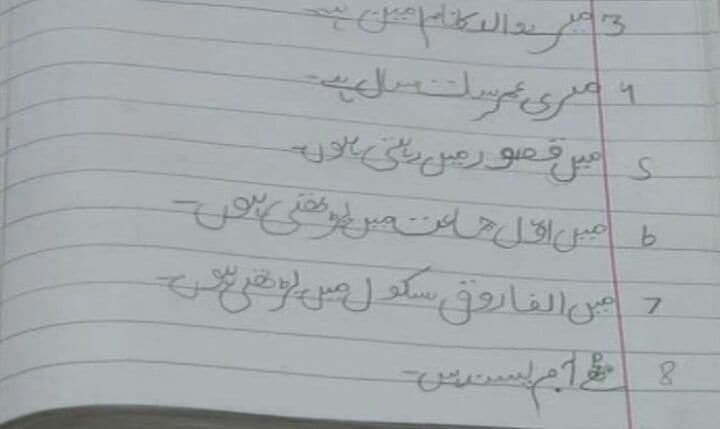 3 میرے والد کا نام مبین ہے۔
4 میری عمر سات سال ہے۔
5 میں قصور میں رہتی ہوں۔
6 میں اوّل جماعت میں پڑھتی ہوں۔
7 میں الفاروق سکول میں پڑھتی ہوں۔
8 مجھے آم پسند ہیں۔